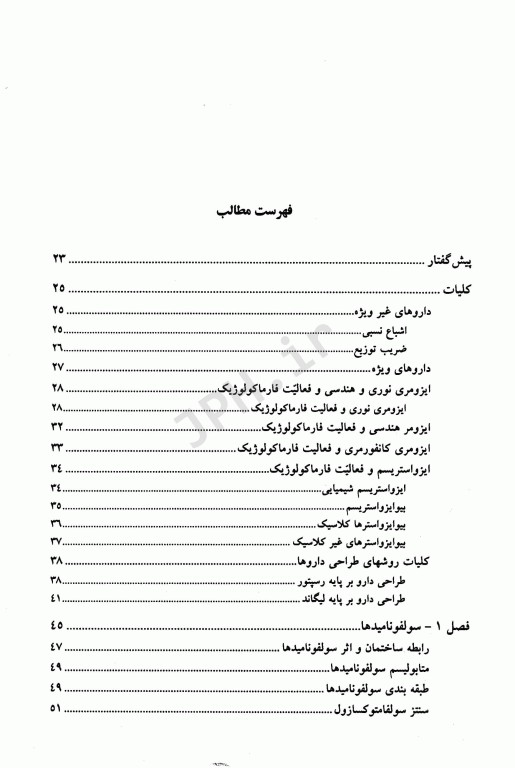 فهرست مطالب
پیش‌گفتار ........ ۲۳
کلیات ........ ۲۵
داروهای غیر ویژه ........ ۲۵
اشباع نسبی ........ ۲۵
ضریب توزیع ........ ۲۶
داروهای ویژه ........ ۲۷
ایزومری نوری و هندسی و فعالیّت فارماکولوژیک ........ ۲۸
ایزومری نوری و فعالیت فارماکولوژیک ........ ۲۸
ایزومر هندسی و فعالیت فارماکولوژیک ........ ۳۲
ایزومری کانفورمری و فعالیت فارماکولوژیک ........ ۳۳
ایزواستریسم و فعالیّت فارماکولوژیک ........ ۳۴
ایزواستریسم شیمیایی ........ ۳۴
بیوایزواستریسم ........ ۳۵
بیوایزواسترها کلاسیک ........ ۳۶
بیوایزواسترهای غیر کلاسیک ........ ۳۷
کلیات روشهای طراحی داروها ........ ۳۸
طراحی دارو بر پایه رسپتور ........ ۳۸
طراحی دارو بر پایه لیگاند ........ ۴۱
فصل ۱ - سولفونامیدها ........ ۴۵
رابطه ساختمان و اثر سولفونامیدها ........ ۴۷
متابولیسم سولفونامیدها ........ ۴۹
طبقه بندی سولفونامیدها ........ ۴۹
سنتز سولفامتوکسازول ........ ۵۱
JPH.ir